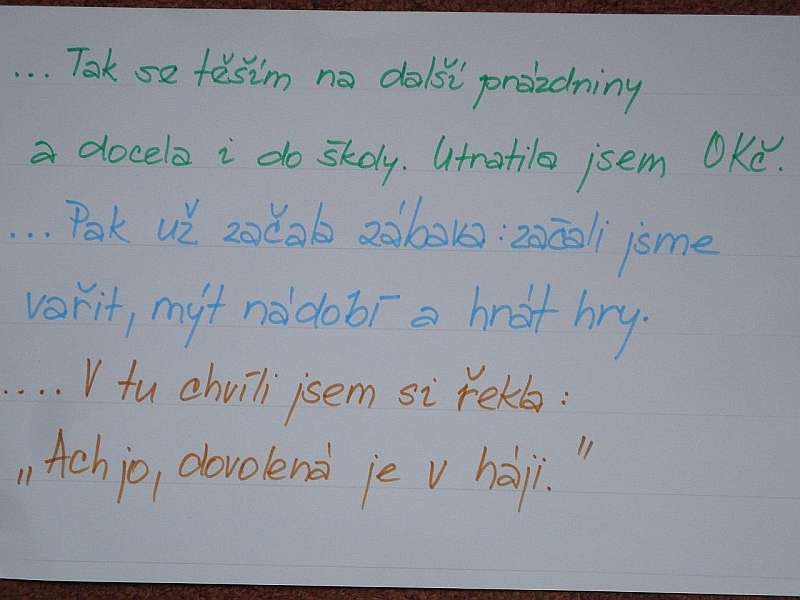 ... Tak se těším na další prázdniny
a docela i do školy. Utratila jsem 0Kč.
... Pak už začala zábava: začali jsme
vařit, mýt nádobí a hrát hry.
.... V tu chvíli jsem si řekla:
„Ach jo, dovolená je v háji."